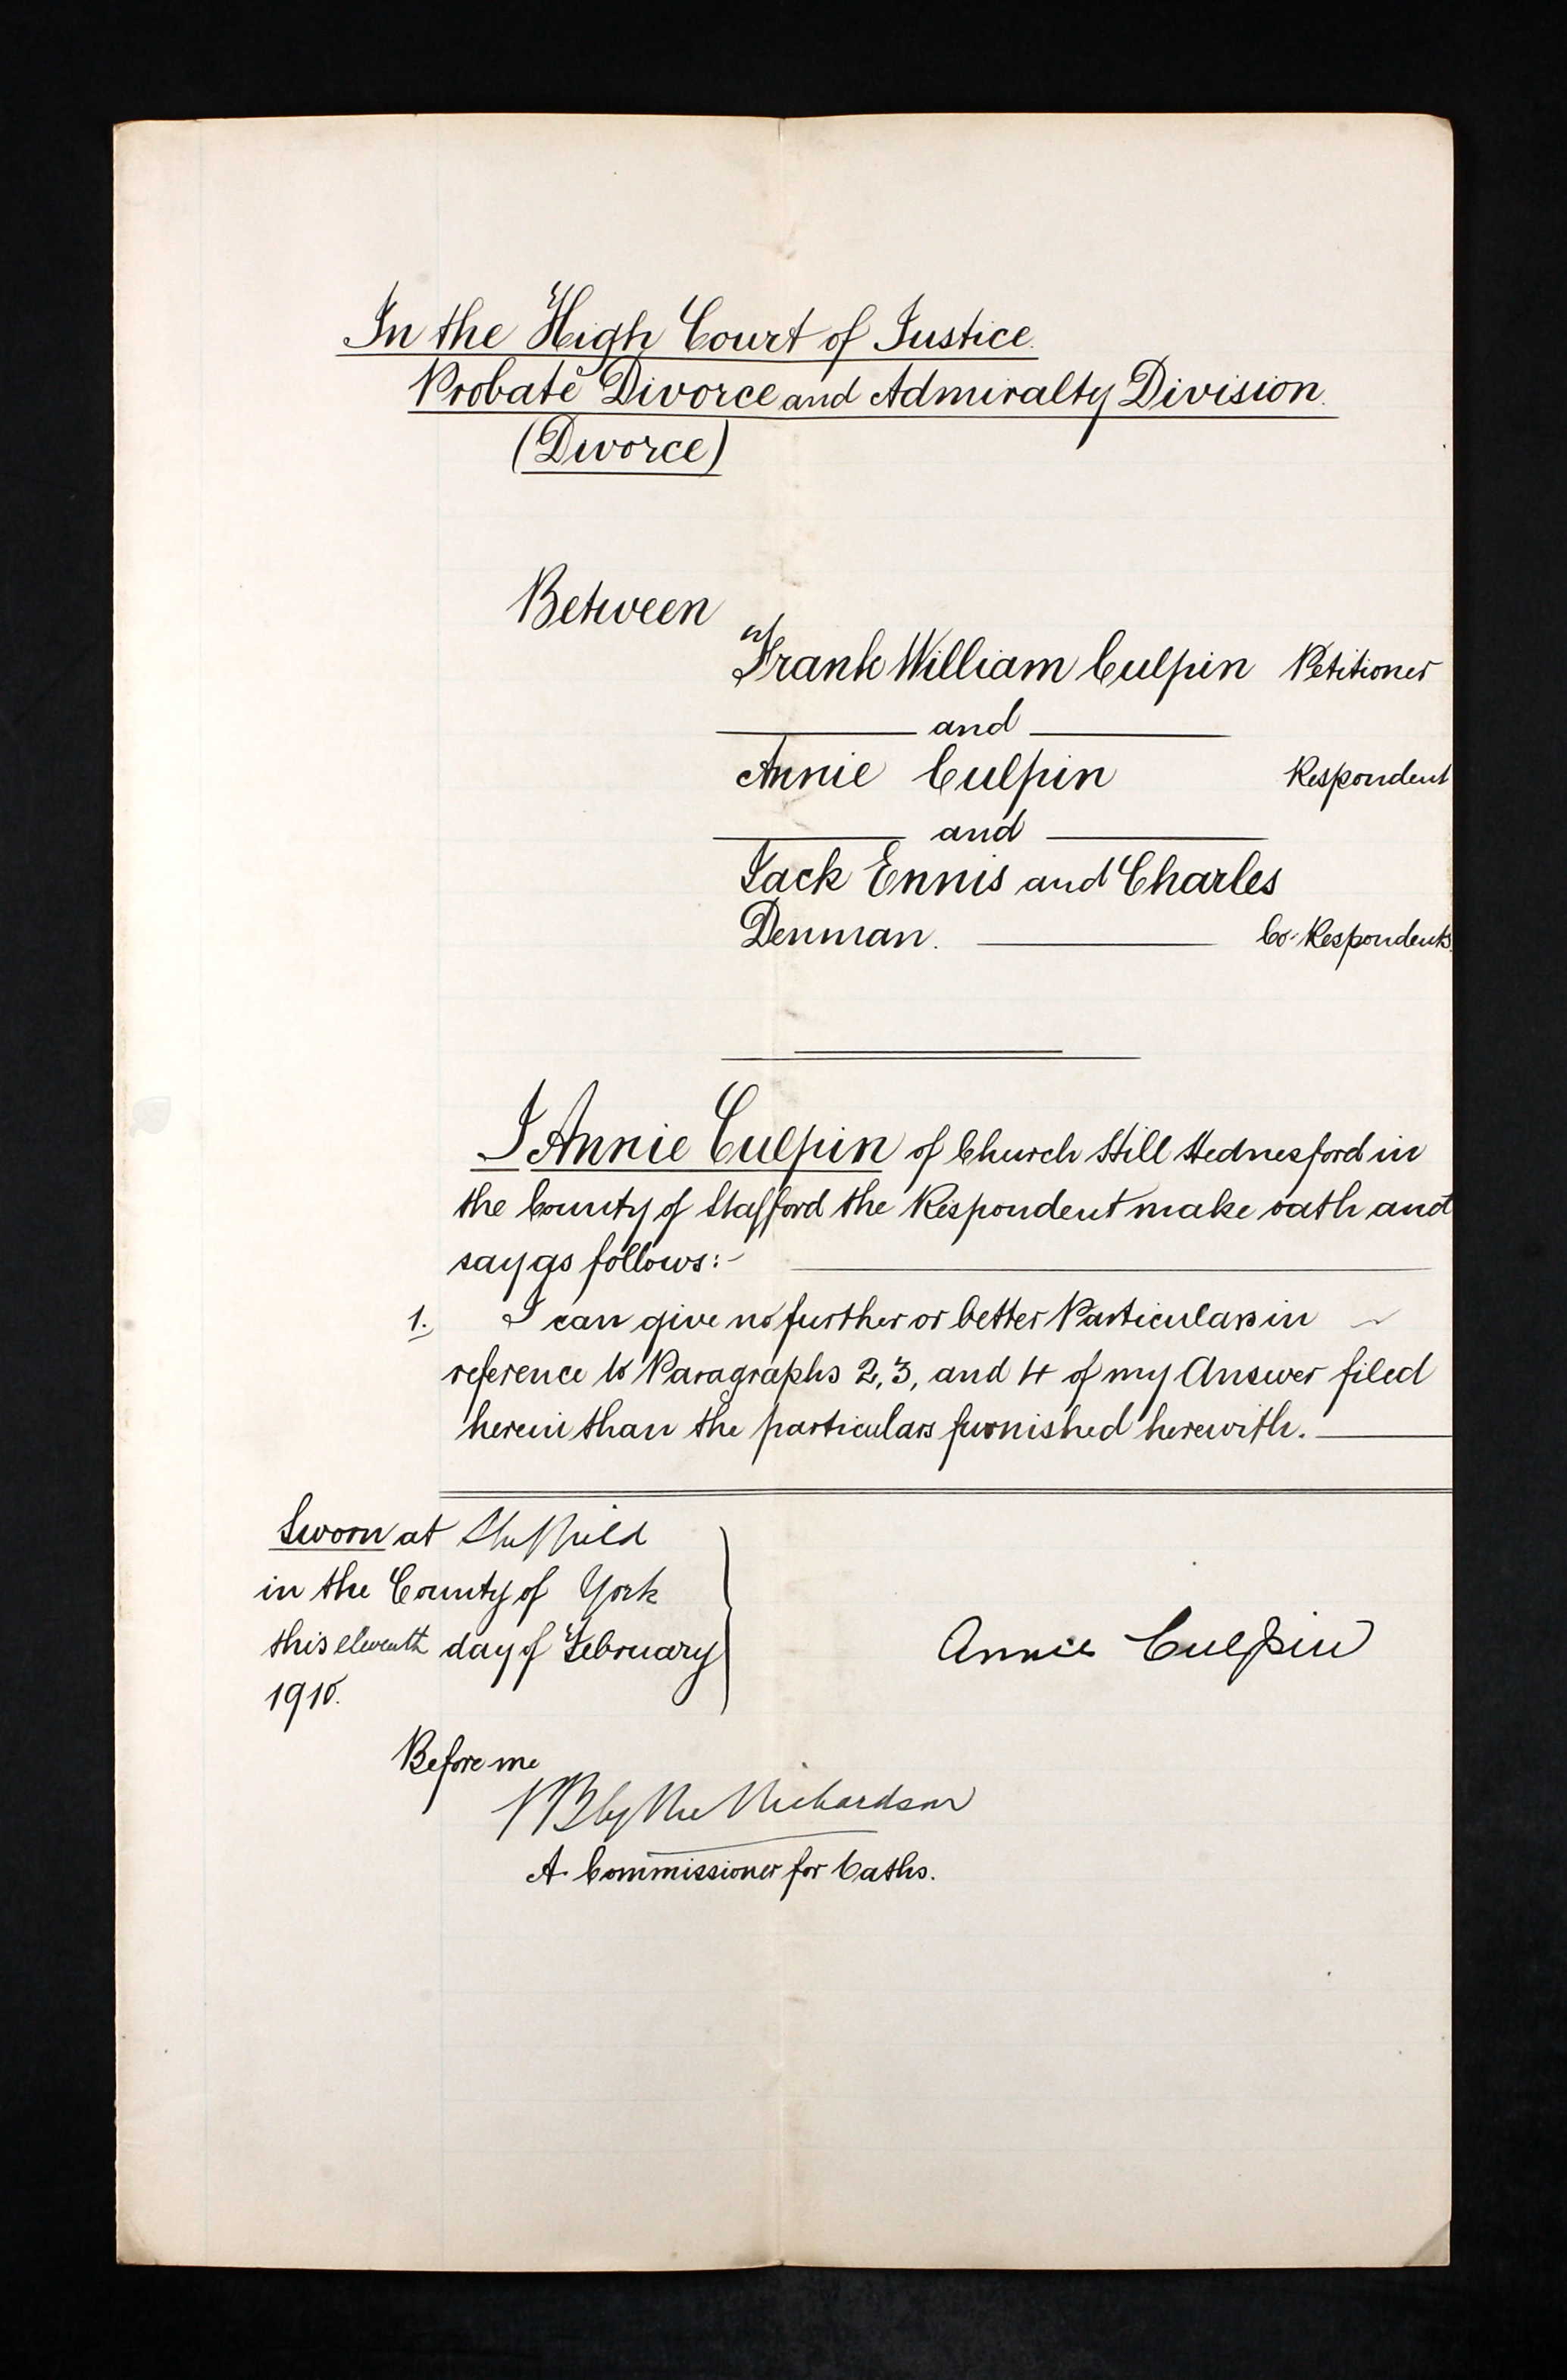 In the High Court of Justice.
Probate Divorce and Admiralty Division.
(Divorce)
Between
Frank William Culpin Petitioner
and
Annie Culpin Respondent
and
Jack Ennis and Charles
Denman. Co-Respondents.
I Annie Culpin of Church Hill Hednesford in
the County of Stafford the Respondent make oath and
say as follows:-
1. I can give no further or better Particulars in
reference to Paragraphs 2, 3, and 4 of my Answer filed
herein than the particulars furnished herewith.
Sworn at Sheffield
in the County of York
this eleventh day of February
1910.
Annie Culpin
Before me
Richardson
A Commissioner for Oaths.